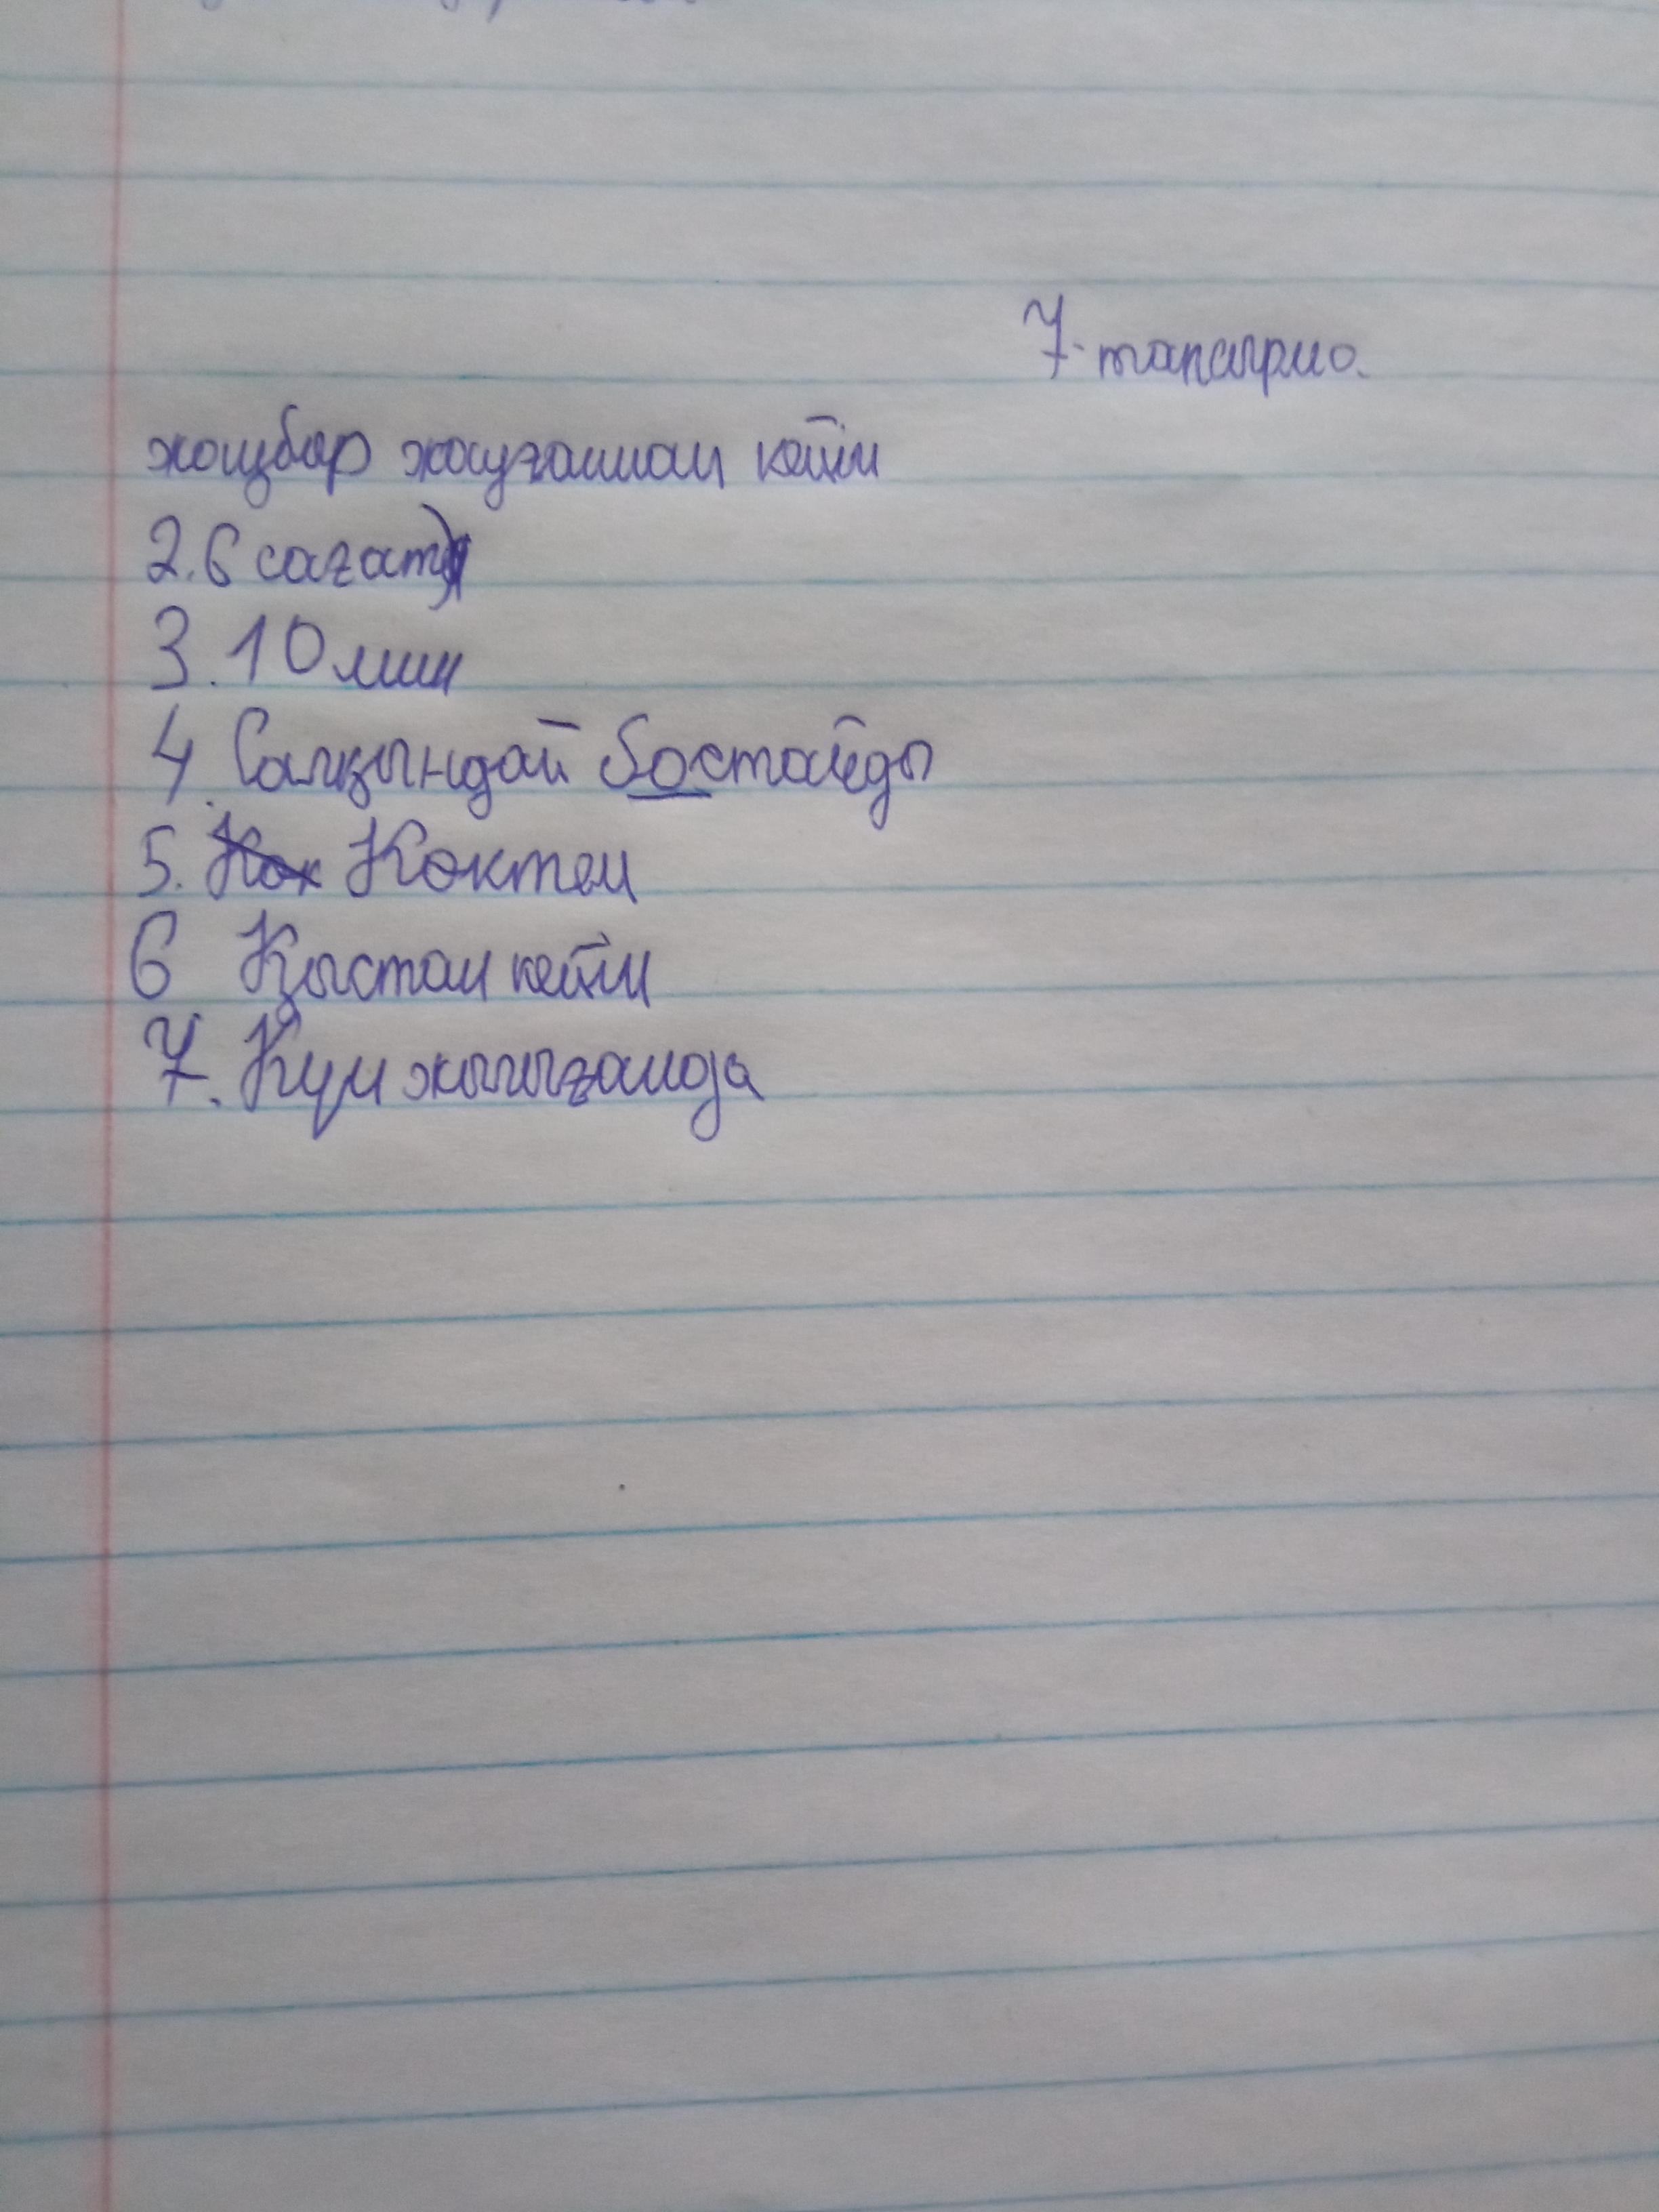 7-тапсырма.
жаңбыр жауғаннан кейін
2. 6 сағат
3. 10 мин
4. Салқындай бастайды
5. Көктем
6 Қыстан кейін
7. Күн жылығанда